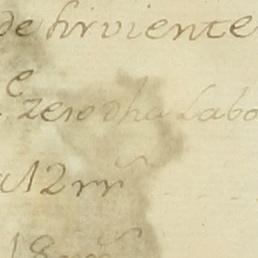 de sirviente
zeso dha Labo
a 12 rr
18